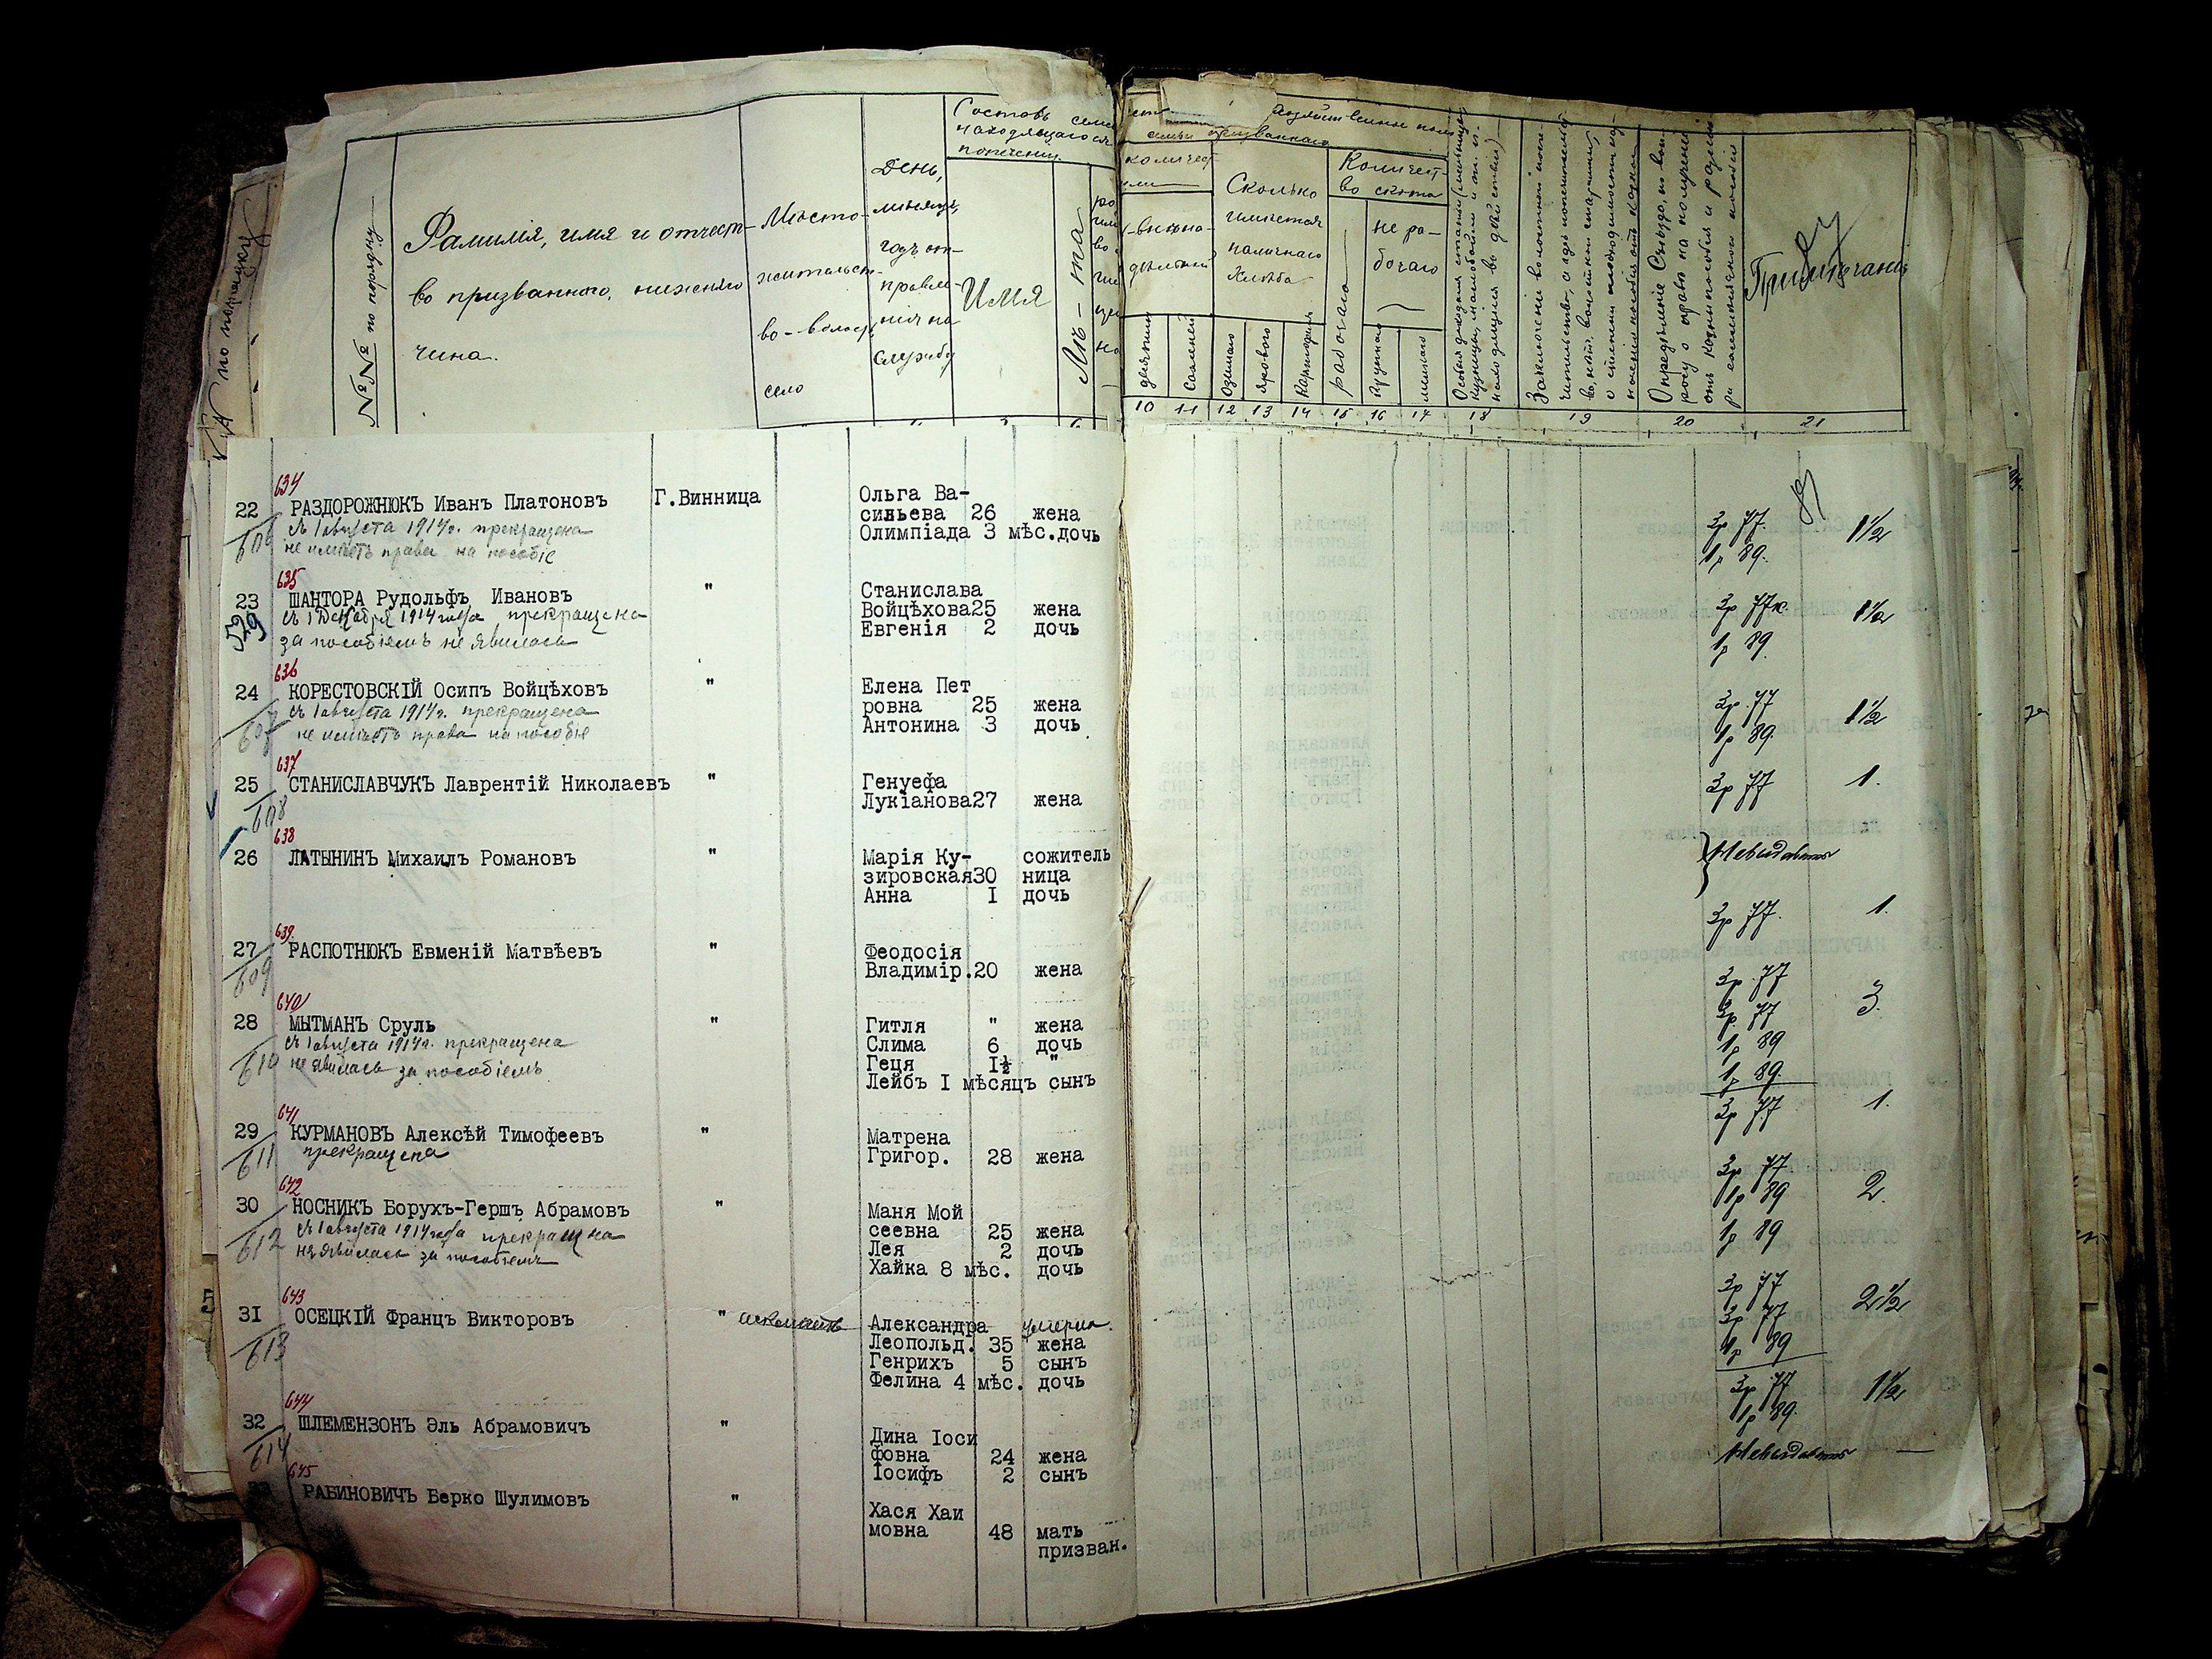 №№ по порядку
Фамилія, имя и отчест-
во призваннаго, нижняго
чина.
Место-
жительст-
во - волость,
село
День,
месяцъ,
годъ от-
правле-
нія на
службу
Составъ семьи
находящагося
попеченіи
Имя
Лѣ-та
семьи призваннаго
количест-
Сколько
имѣется
наличнаго
хлѣба
Количест-
во скота
не ра-
бочаго
десятинъ
Саженей
Озимаго
Ярового
рабочаго
Крупнаго
мелкаго
Примѣчаніе
10 11 12 13 14 15 16 17 18 19 20 21
634
22 РАЗДОРОЖНЮКЪ Иванъ Платоновъ Г.Винница Ольга Ва-
сильева 26 жена
Олимпіада 3 мѣс.дочь
606 съ 1 августа 1914 г. прекращена
не имѣетъ права на пособіе
3р 77. 1½
1р 89.
635
23 ШАНТОРА Рудольфъ Ивановъ " Станислава
Войцѣхова25 жена
Евгенія 2 дочь
529 съ 1 Декабря 1914 года прекращена
за пособіемъ не явилась
3р 77к. 1½
1р 89
636
24 КОРЕСТОВСКІЙ Осипъ Войцѣховъ " Елена Пет
ровна 25 жена
Антонина 3 дочь
607 съ 1 августа 1914 г. прекращена
не имѣетъ права на пособіе
3р 77 1½
1р 89.
637
25 СТАНИСЛАВЧУКЪ Лаврентій Николаевъ " Генуефа
Лукіанова27 жена
608
3р 77 1.
638
26 ЛАТЫНИНЪ Михаилъ Романовъ " Марія Ку- сожитель
зировская30 ница
Анна I дочь
Невыдавать
639
27 РАСПОТНЮКЪ Евменій Матвѣевъ " Феодосія
Владимір.20 жена
609
3р 77. 1.
640
28 МЫТМАНЪ Сруль " Гитля " жена
Слима 6 дочь
Геця I½ "
Лейбъ I мѣсяцъ сынъ
610 съ 1 августа 1914 г. прекращена
не явилась за пособіемъ
3р 77
3р 77 3.
1р 89
1р 89.
641
29 КУРМАНОВЪ Алексѣй Тимофеевъ " Матрена
Григор. 28 жена
611 прекращена
3р 77 1.
642
30 НОСНИКЪ Борухъ-Гершъ Абрамовъ " Маня Мой
сеевна 25 жена
Лея 2 дочь
Хайка 8 мѣс. дочь
612 съ 1 августа 1914 года прекращена
не явилась за пособіемъ
3р 77
1р 89 2.
1р 89
643
31 ОСЕЦКІЙ Францъ Викторовъ " Александра умерла.
Леопольд. 35 жена
Генрихъ 5 сынъ
Фелина 4 мѣс. дочь
613
3р 77
3р 77 2½
1р 89
644
32 ШЛЕМЕНЗОНЪ Эль Абрамовичъ " Дина Іоси
фовна 24 жена
Іосифъ 2 сынъ
614
3р 77 1½
1р 89.
645
33 РАБИНОВИЧЪ Берко Шулимовъ " Хася Хаи
мовна 48 мать
призван.
Невыдавать —